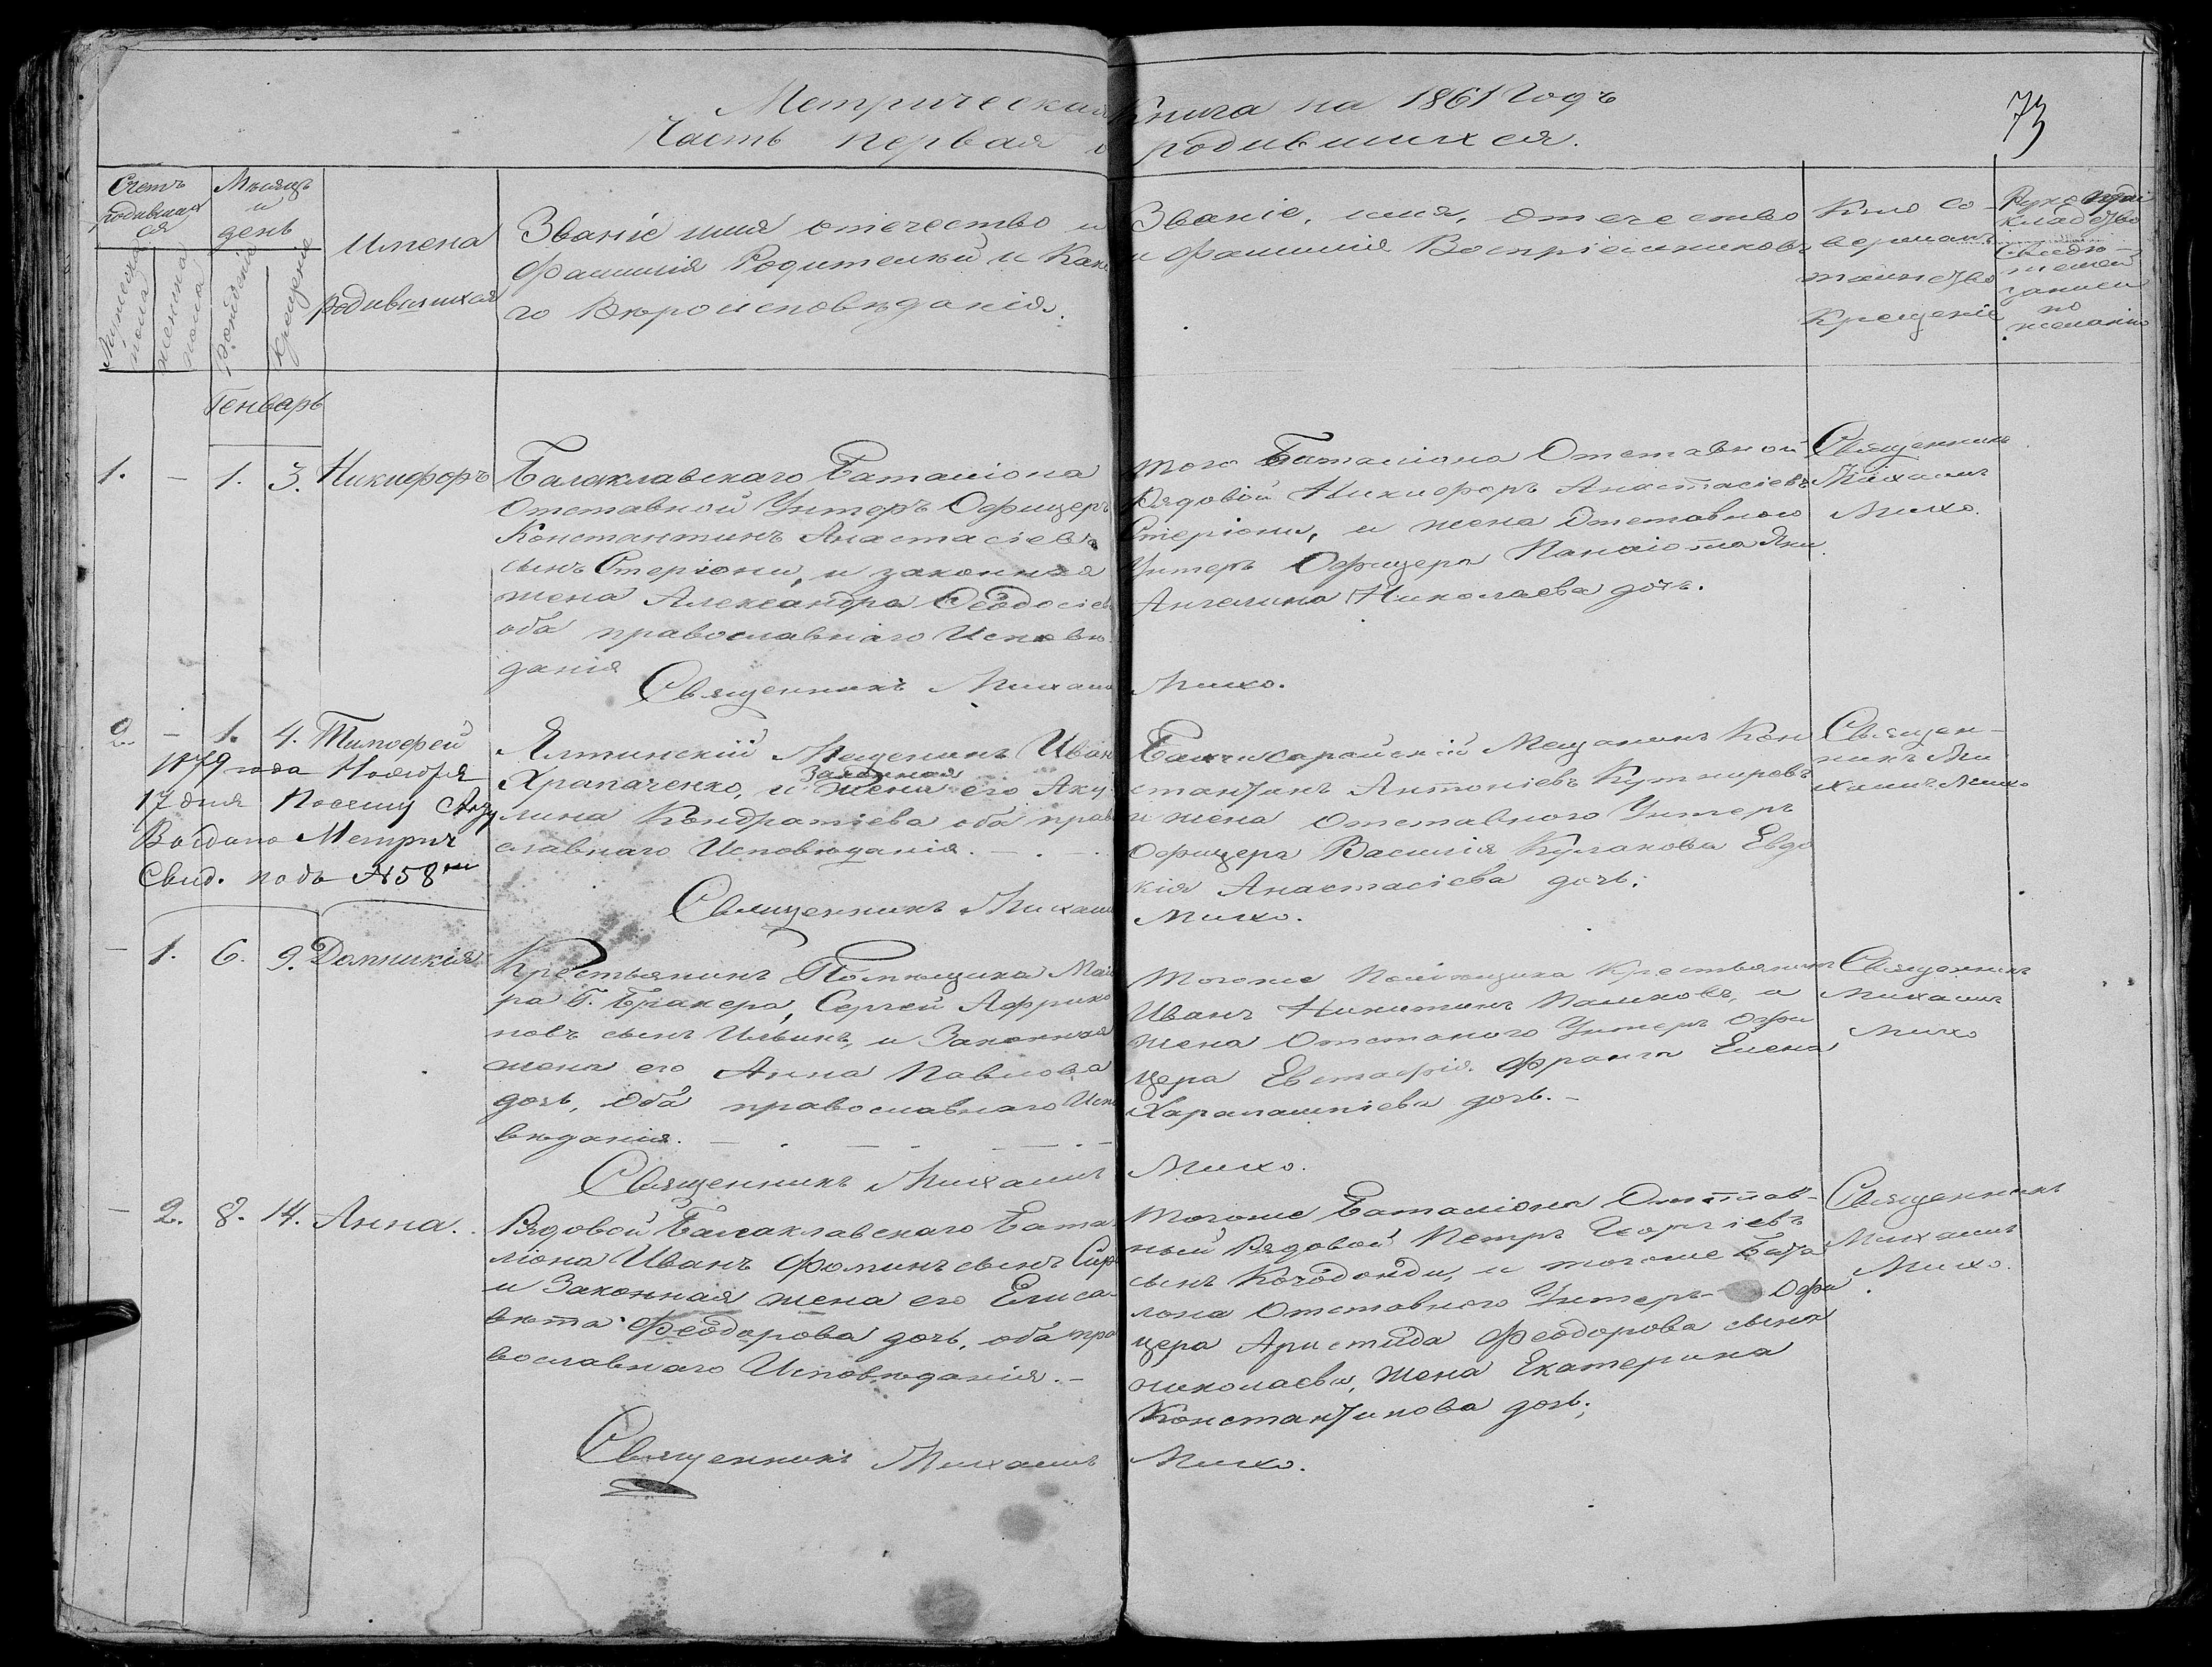 Метрическая Книга на 1861 Годъ
73
Часть первая о родившихся.
Счетъ
родившихся
Мужеска
пола
женска
пола
Мѣсяцъ
и
день
рожденіе
Крещеніе
Имена
родившихся
Званіе имя отечество и
Фамилія Родителей и Како
го Вѣроисповѣданія.
Званіе, имя, отечество
и Фамилія Воспріемниковъ
Кто со-
вершалъ
таинство
Крещеніе
Рукопри
кладство
свидѣ-
телей
записи
по
желанію
Генварь
1. - 1. 3. Никифоръ
Балаклавскаго Баталіона
Отставной Унтеръ Офицеръ
Константинъ Анастасіевъ
сынъ Стеріони, и законная
жена Александра Ѳеодосіев
оба православнаго Исповѣ
данія
Священникъ Михаилъ
Того Баталіона Отставной
Рядовой Никифоръ Анастасіевъ
Стеріони, и жена Отставного
Унтеръ Офицера Панаіота Яни
Ангелина Николаева дочь.
Михо.
Священникъ
Михаилъ
Михо.
2. - 1. 4. Тимофей
1879 года Ноября
17 дня
Выдано Метрич
Свид. подъ № 58
Ялтинскій Мещенинъ Иван
Храпаченко, и законная жена его Аку
лина Кондратіева оба прав
славнаго Исповѣданія.
Священникъ Михаилъ
Бахчисарайскій Мещанинъ Кон
стантинъ Антоніевъ Кушнировъ
и жена Отставного Унтеръ
Офицера Василія Кулакова Евдо
кія Анастасіева дочь.
Михо.
Священ-
никъ Ми
хаилъ Михо
- 1. 6. 9. Домникія
Крестьянинъ Помѣщика Маіо
ра Г. Бракера, Сергей Африка
новъ сынъ Ильинъ, и Законная
жена его Анна Павлова
дочь, оба православнаго Испо
вѣданія.
Священникъ Михаилъ
Тогоже Помѣщика Крестьянинъ
Иванъ Никитинъ Поляковъ, и
жена Отстаного Унтеръ Офи
цера Евстафія Франга Елена
Харалампіева дочь.-
Михо.
Священникъ
Михаилъ
Михо
- 2. 8. 14. Анна.
Рядовой Балаклавскаго Бата
ліона Иванъ Фоминъ сынъ
и Законная жена его Елиса-
вѣта Ѳеодорова дочь, оба пра
вославнаго Исповѣданія.-
Священникъ Михаилъ
Тогоже Баталіона Отстав-
ный Рядовой Петръ Георгіевъ
сынъ и тогоже Бата
лона Отставного Унтеръ-Офи
цера Аристида Ѳеодорова сына
Николаева, жена Екатерина
Константинова дочь;
Михо.
Священникъ
Михаилъ
Михо.